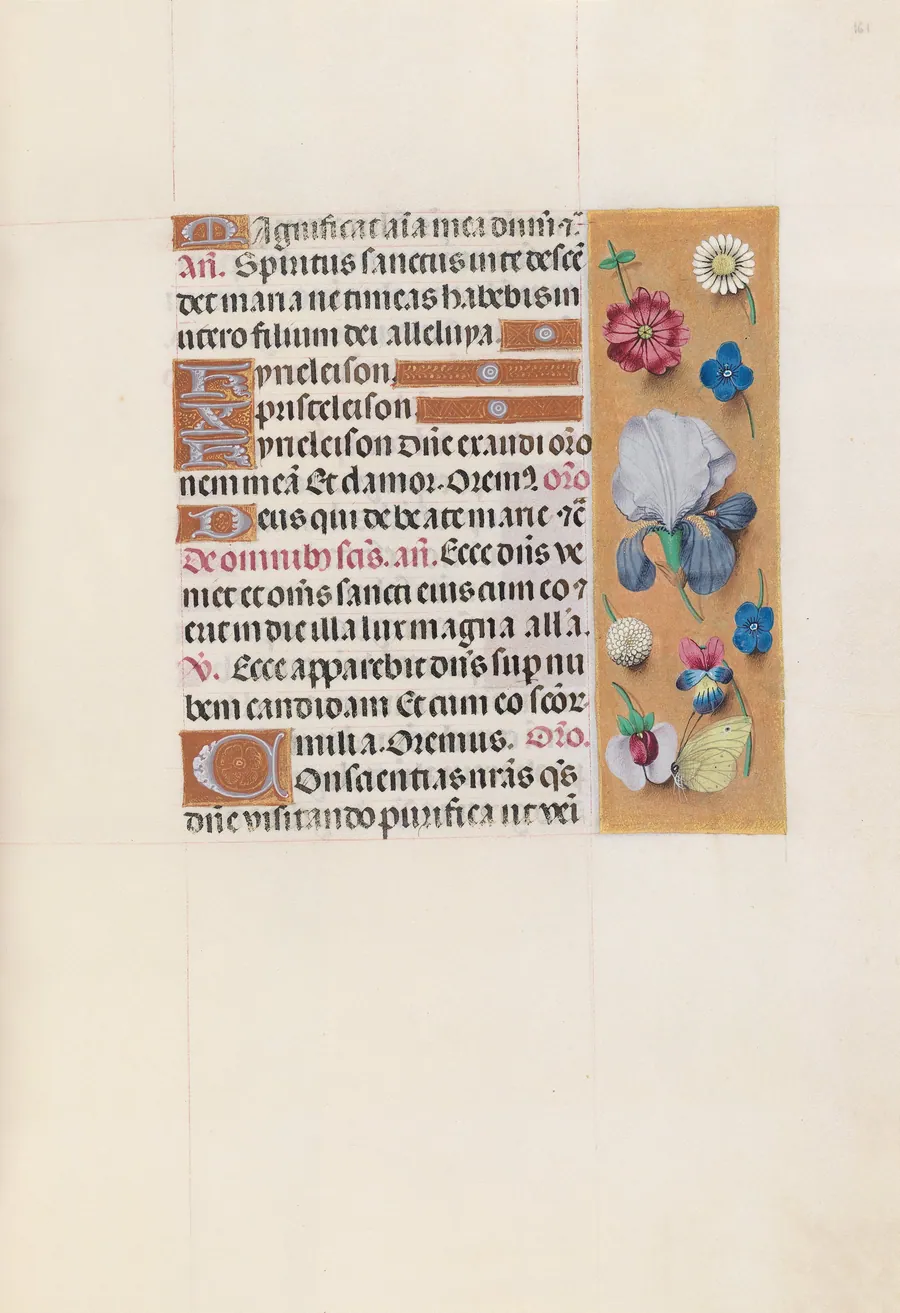 161
Magnificat aīa mea dnm̄ ⁊c̄
An̄. Spiritus sanctus in te descē
det maria ne timeas habebis in
utero filium dei alleluya.
Kyrieleison,
Xpristeleison,
Kyrieleison Dn̄e exaudi orō
nem meā Et clamor. Orem⁹. orō
Deus qui de beate marie ⁊c̄
De omnib⁹ scīs. an̄. Ecce dn̄s ve
niet et om̄s sancti eius cum eo ⁊
erit in die illa lux magna alla.
V̄. Ecce apparebit dn̄s sup nu
bem candidam Et cum eo scōr
milia. Oremus. Orō.
Consciencias nrās qs̄
dn̄e visitando purifica ut vei